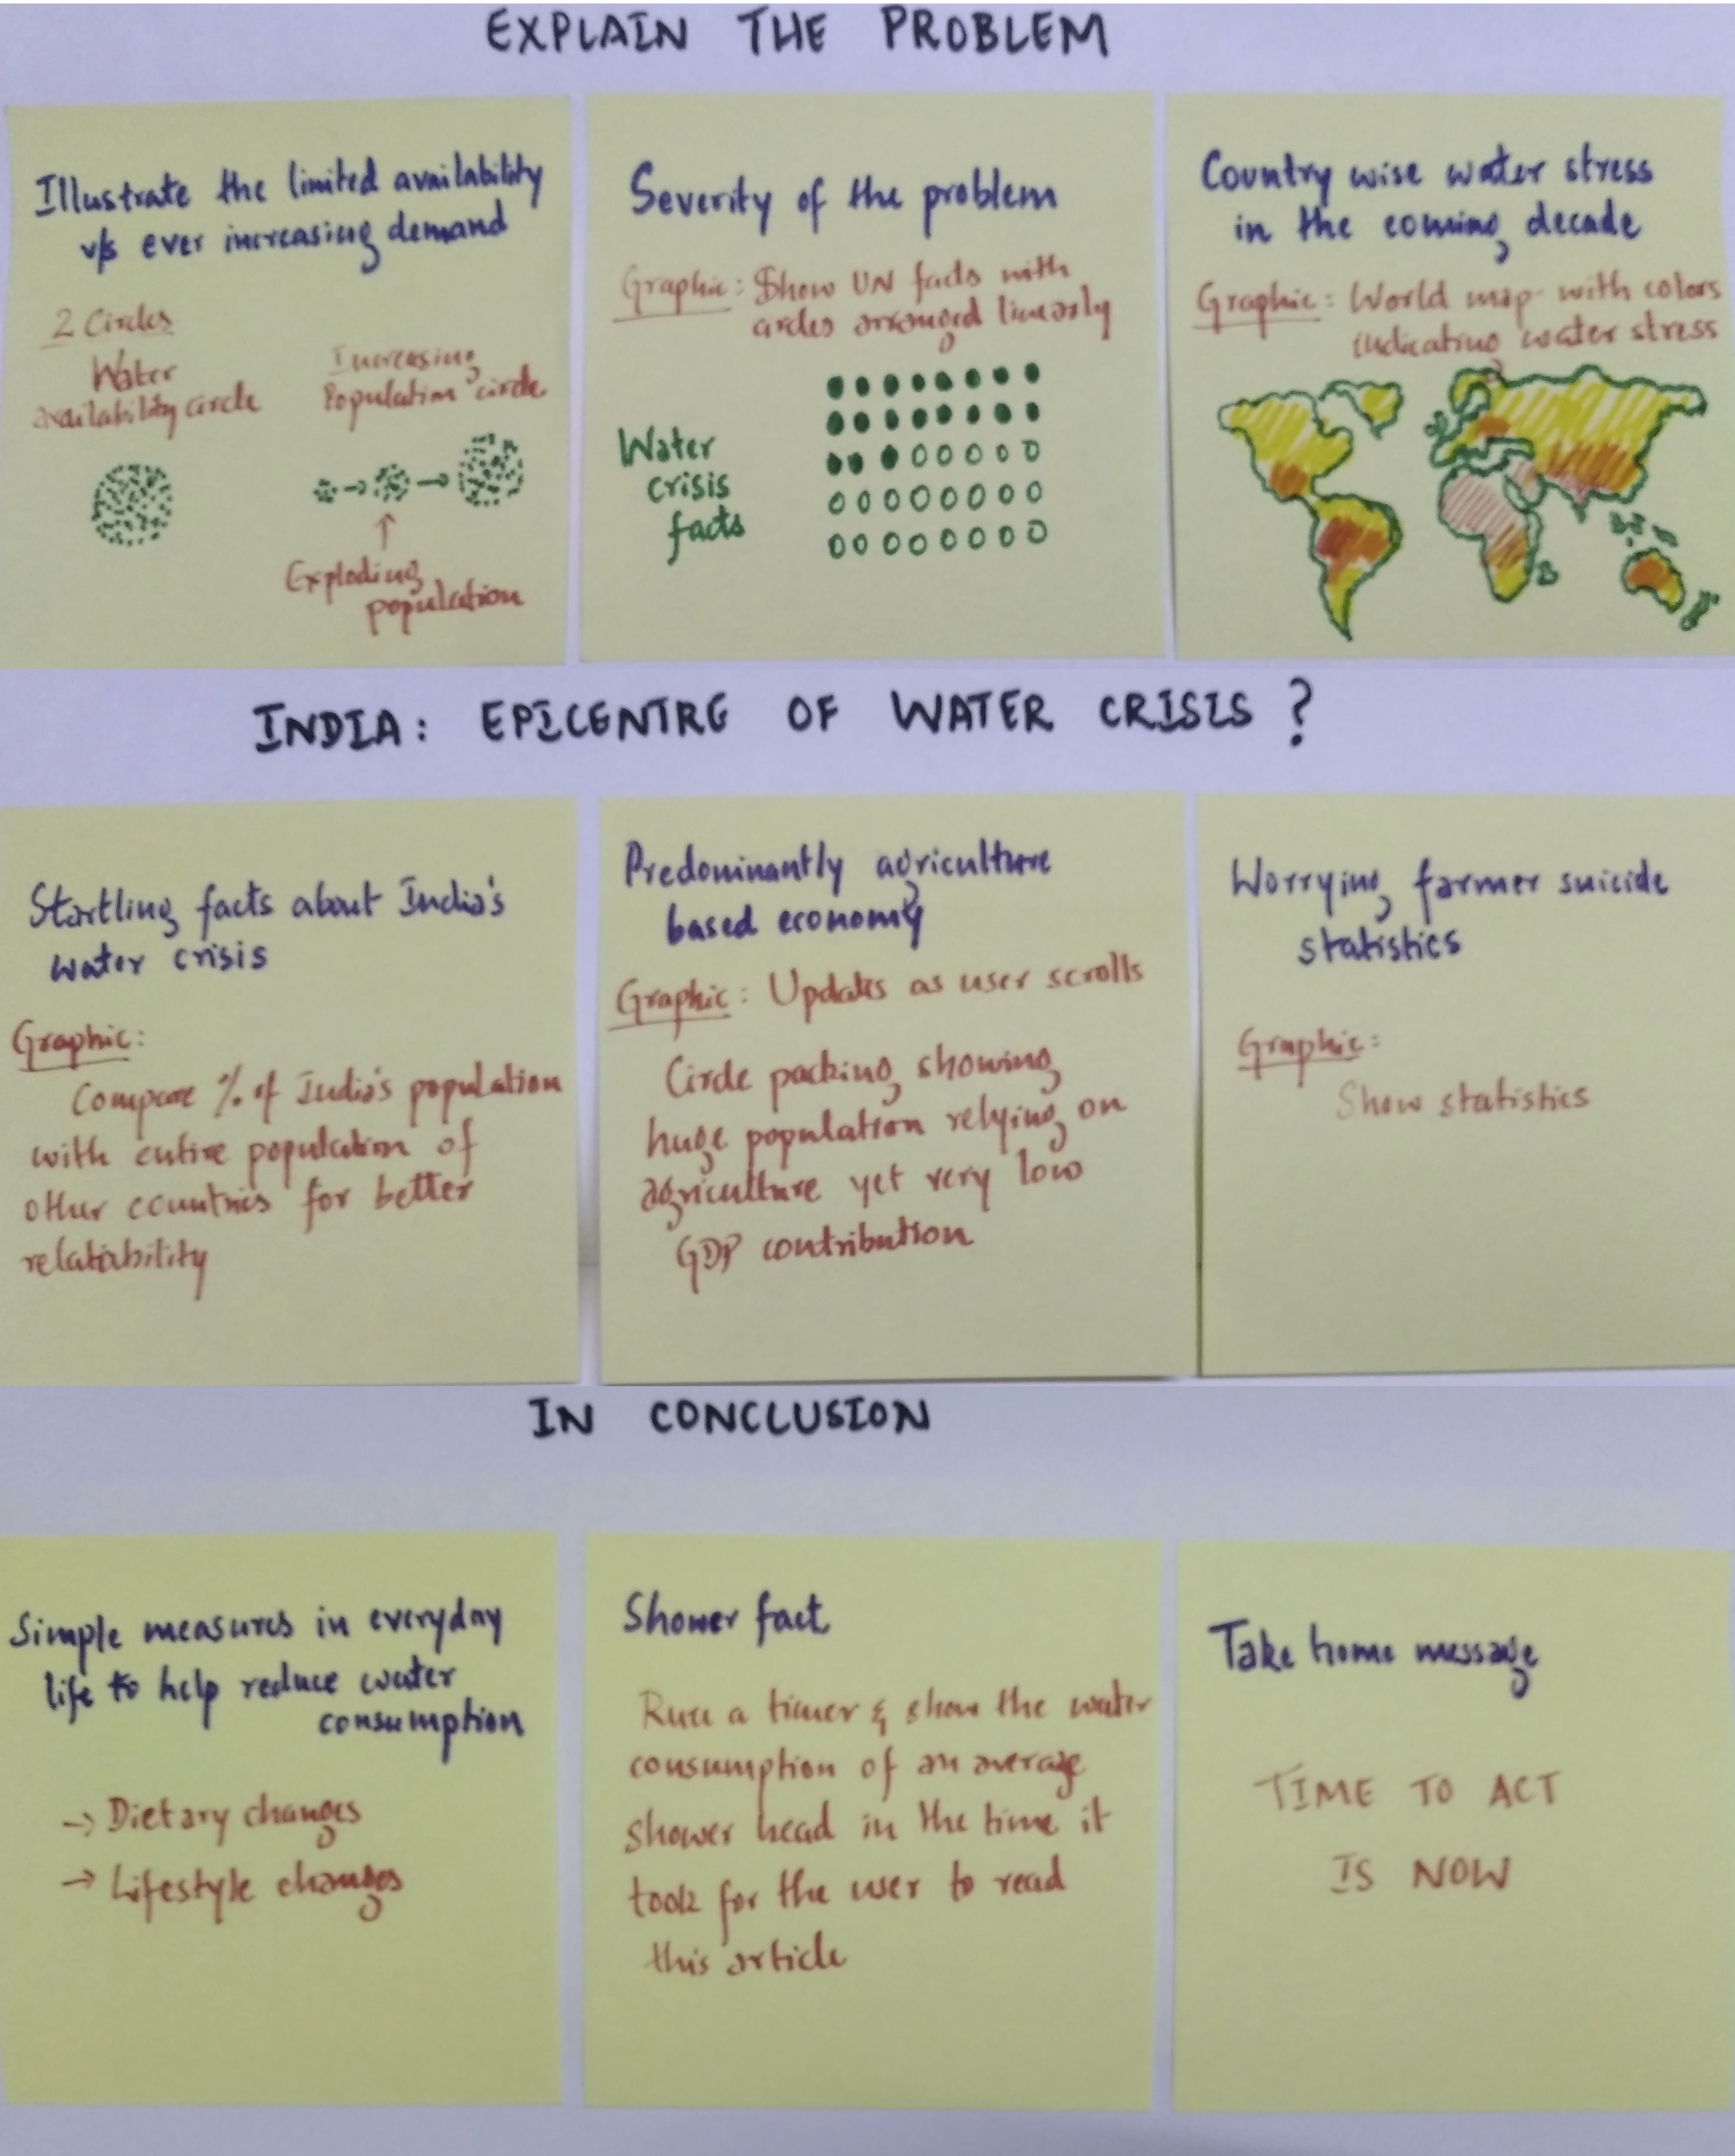 EXPLAIN THE PROBLEM
Illustrate the limited availability
v/s ever increasing demand
2 Circles
Water
availability circle
Increasing
Population circle
Exploding
population
Severity of the problem
Graphic: Show UN facts with
circles arranged linearly
Water
crisis
facts
Country wise water stress
in the coming decade
Graphic: World map with colors
indicating water stress
INDIA: EPICENTRE OF WATER CRISIS ?
Startling facts about India's
water crisis
Graphic:
Compare % of India's population
with entire population of
other countries for better
relatability
Predominantly agriculture
based economy
Graphic: Updates as user scrolls
Circle packing showing
huge population relying on
agriculture yet very low
GDP contribution
Worrying farmer suicide
statistics
Graphic:
Show statistics
IN CONCLUSION
Simple measures in everyday
life to help reduce water
consumption
→ Dietary changes
→ Lifestyle changes
Shower fact
Run a timer & show the water
consumption of an average
shower head in the time it
took for the user to read
this article
Take home message
TIME TO ACT
IS NOW